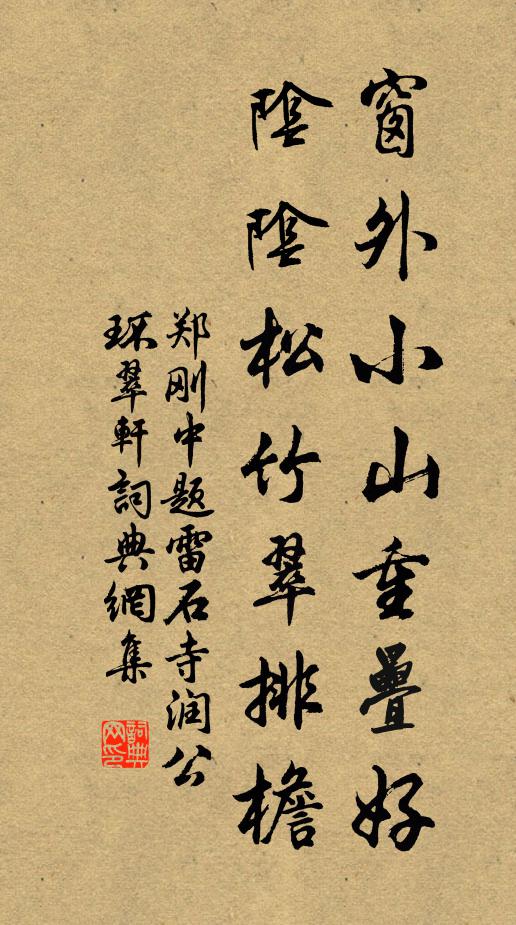 窗外小山重疊好
陰陰松竹翠排檐
郑刚中题雷石寺润公
环翠軒詞典網集
詞典网印